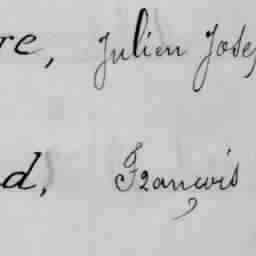 re, Julien Jose
d, François